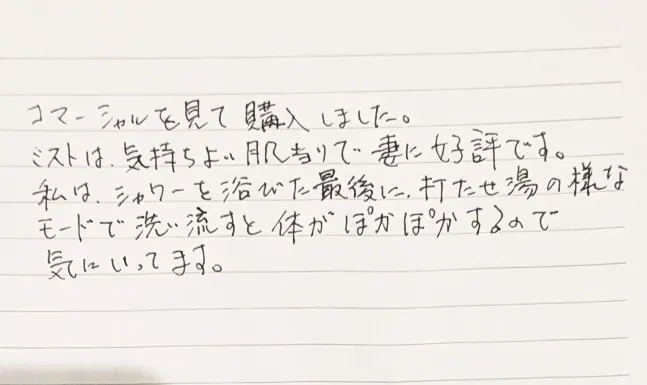 コマーシャルを見て購入しました。
ミストは、気持ちよい肌当りで妻に好評です。
私は、シャワーを浴びた最後に、打たせ湯の様な
モードで洗い流すと体がぽかぽかするので
気にいってます。